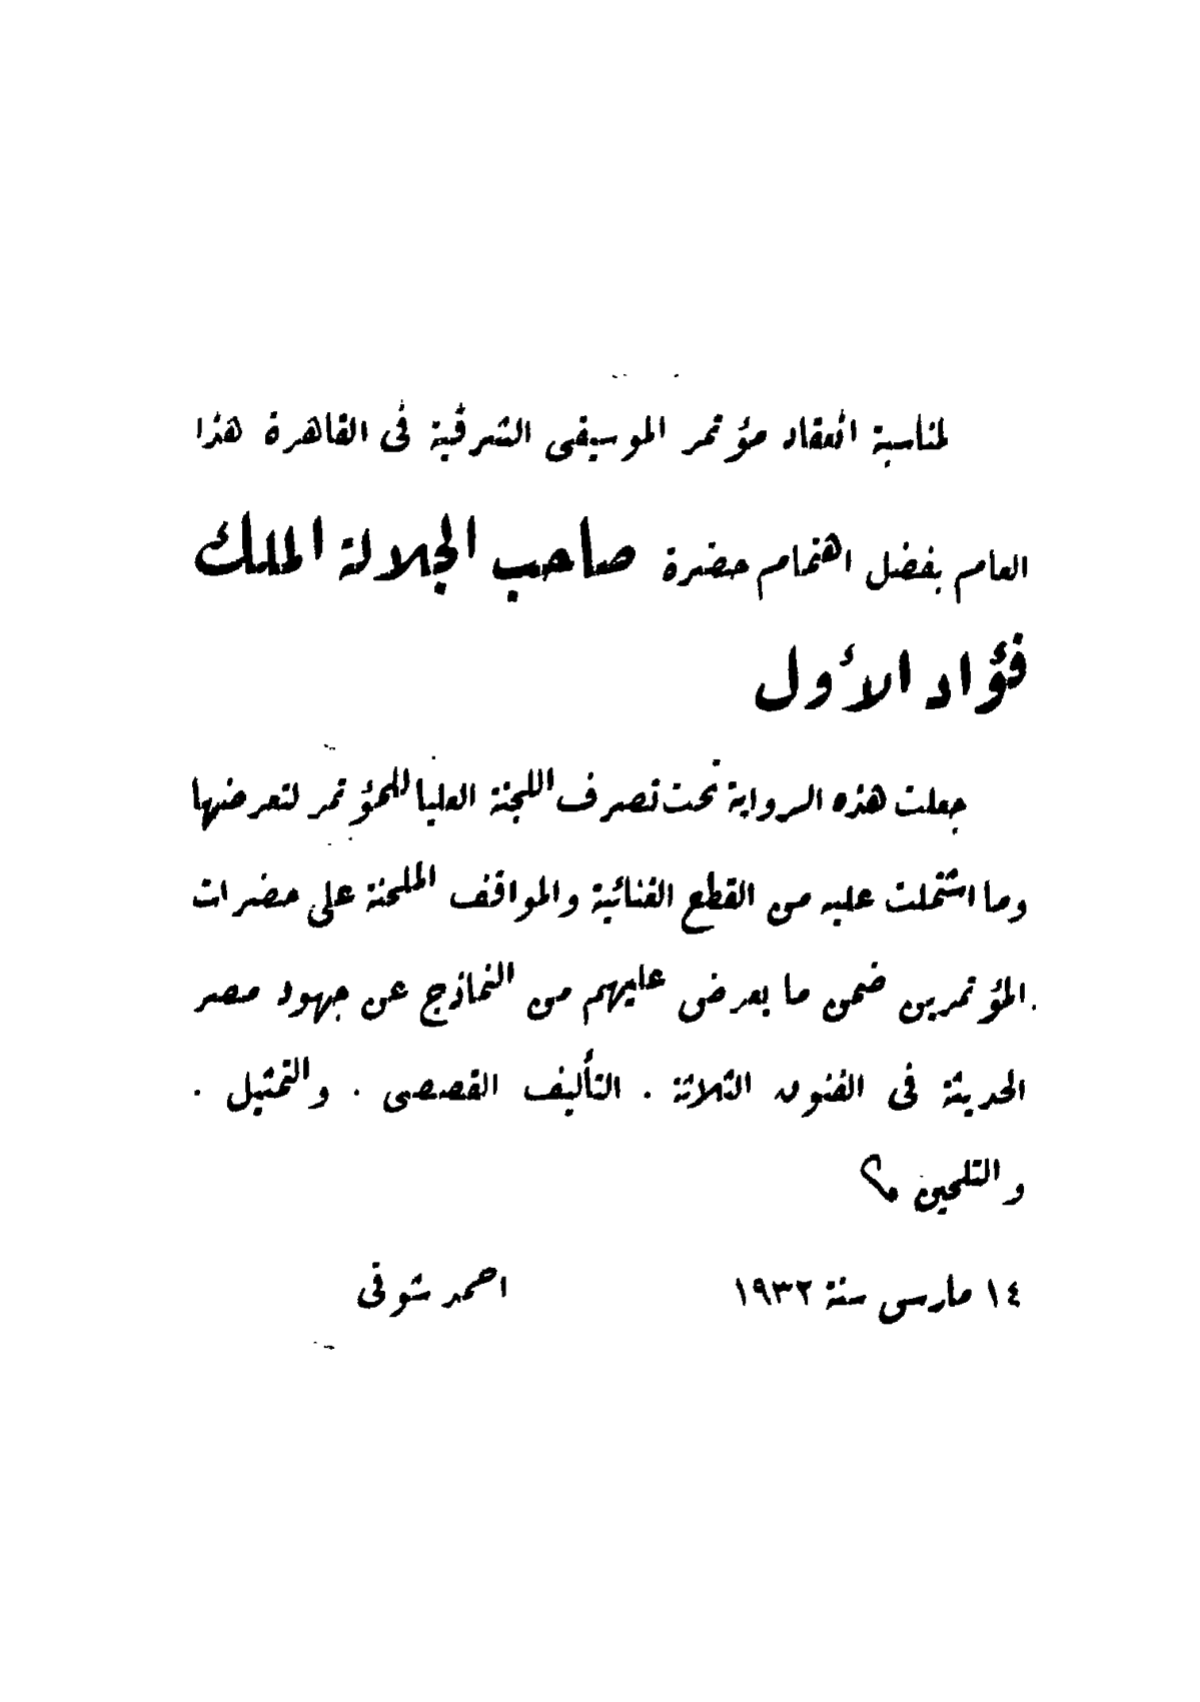 لمناسبة انعقاد مؤتمر الموسيقى الشرقية فى القاهرة هذا
العام بفضل اهتمام حضرة صاحب الجلالة الملك
فؤاد الأول
جعلت هذه الرواية تحت تصرف اللجنة العليا للمؤتمر لتعرضها
وما اشتملت عليه من القطع الغنائية والمواقف الملحنة على حضرات
المؤتمرين ضمن ما يعرض عليهم من النماذج عن جهود مصر
الحديثة فى الفنون الثلاثة . التأليف القصصى . والتمثيل .
والتلحين
١٤ مارس سنة ١٩٣٢ احمد شوقى